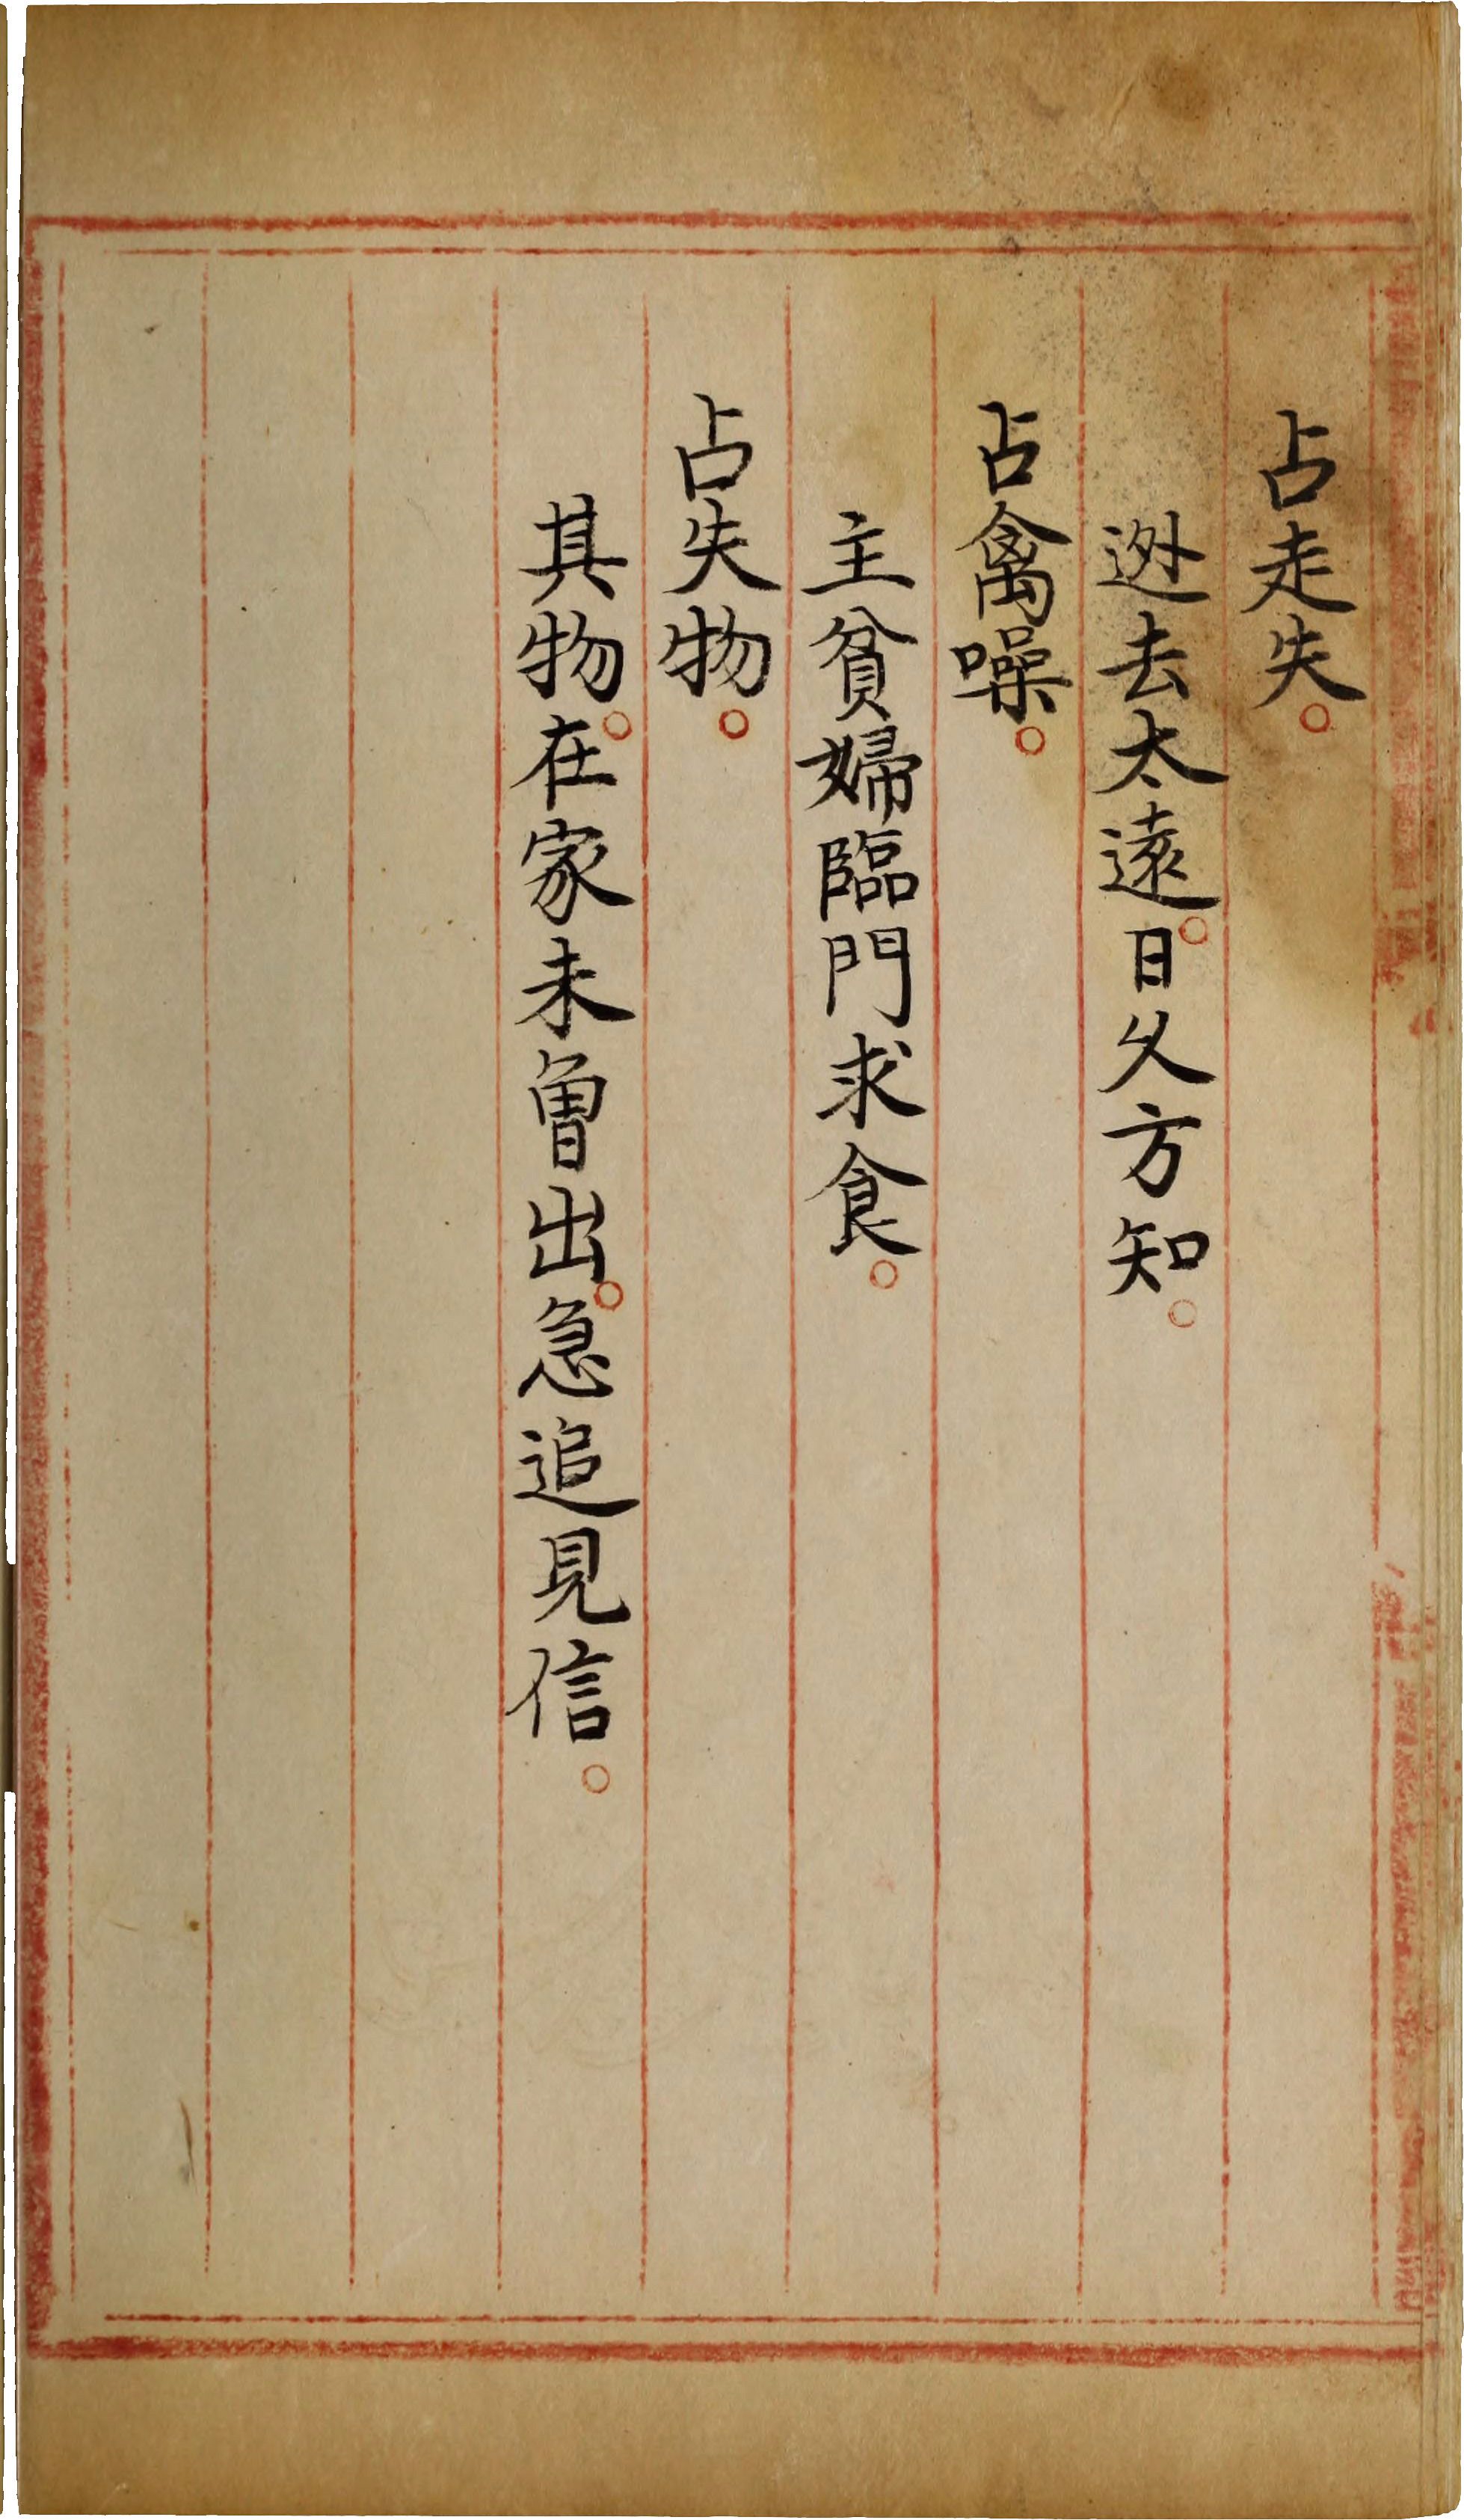 占走失。
逃去太遠。日久方知。
占禽噪。
主貧婦臨門求食。
占失物。
其物。在家未曾出。急追見信。